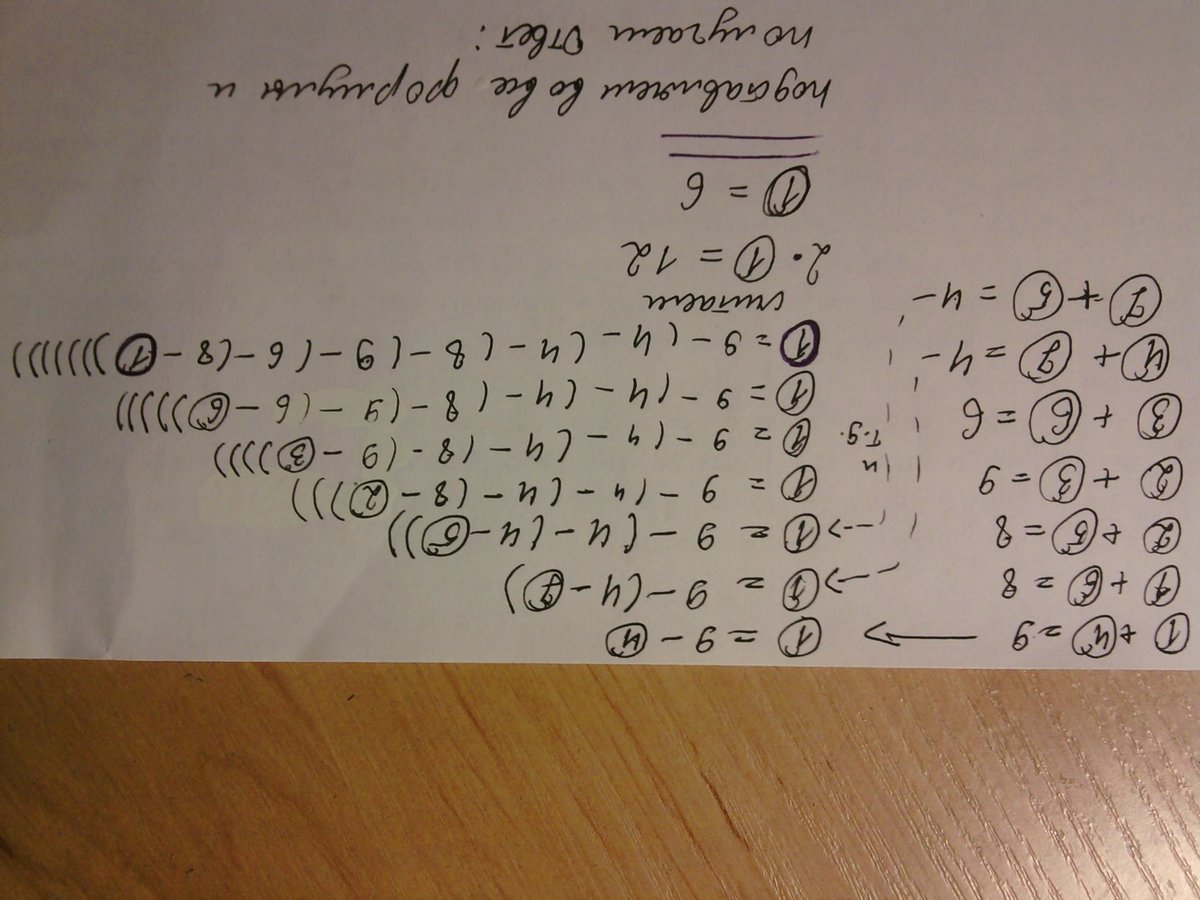 ① + ④ = 9 → ① = 9 - ④
① + ⑥ = 8 --> ① = 9 - (4 - ⑦)
② + ⑤ = 8 --> ① = 9 - (4 - (4 - ⑤))
② + ③ = 9 и ① = 9 - (4 - (4 - (8 - ②)))
③ + ⑥ = 6 т.д. ① = 9 - (4 - (4 - (8 - (9 - ③))))
④ + ⑦ = 4 - ① = 9 - (4 - (4 - (8 - (9 - (6 - ⑥)))))
⑦ + ⑤ = 4 - ① = 9 - (4 - (4 - (8 - (9 - (6 - (8 - ①))))))
считаем
2 · ① = 12
① = 6
подставляем во все формулы и
получаем ответ: